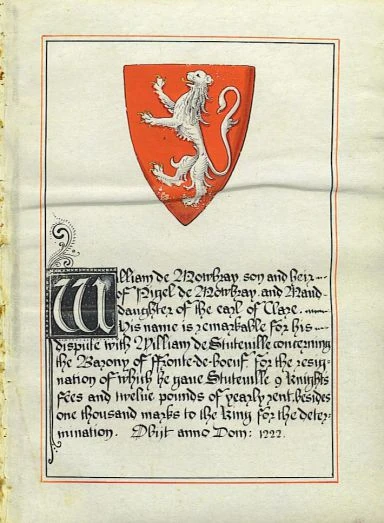 William de Mowbray son and heir
of Nigel de Mowbray and Maud
daughter of the earl of Clare.
his name is remarkable for his
dispute with William de Stuteville concerning
the Barony of Ffronte-de-boeuf for the resig-
nation of which he gave Stuteville 9 Knights
fees and twelve pounds of yearly rent, besides
one thousand marks to the King for the deter-
mination. Obijt anno Dom: 1222.